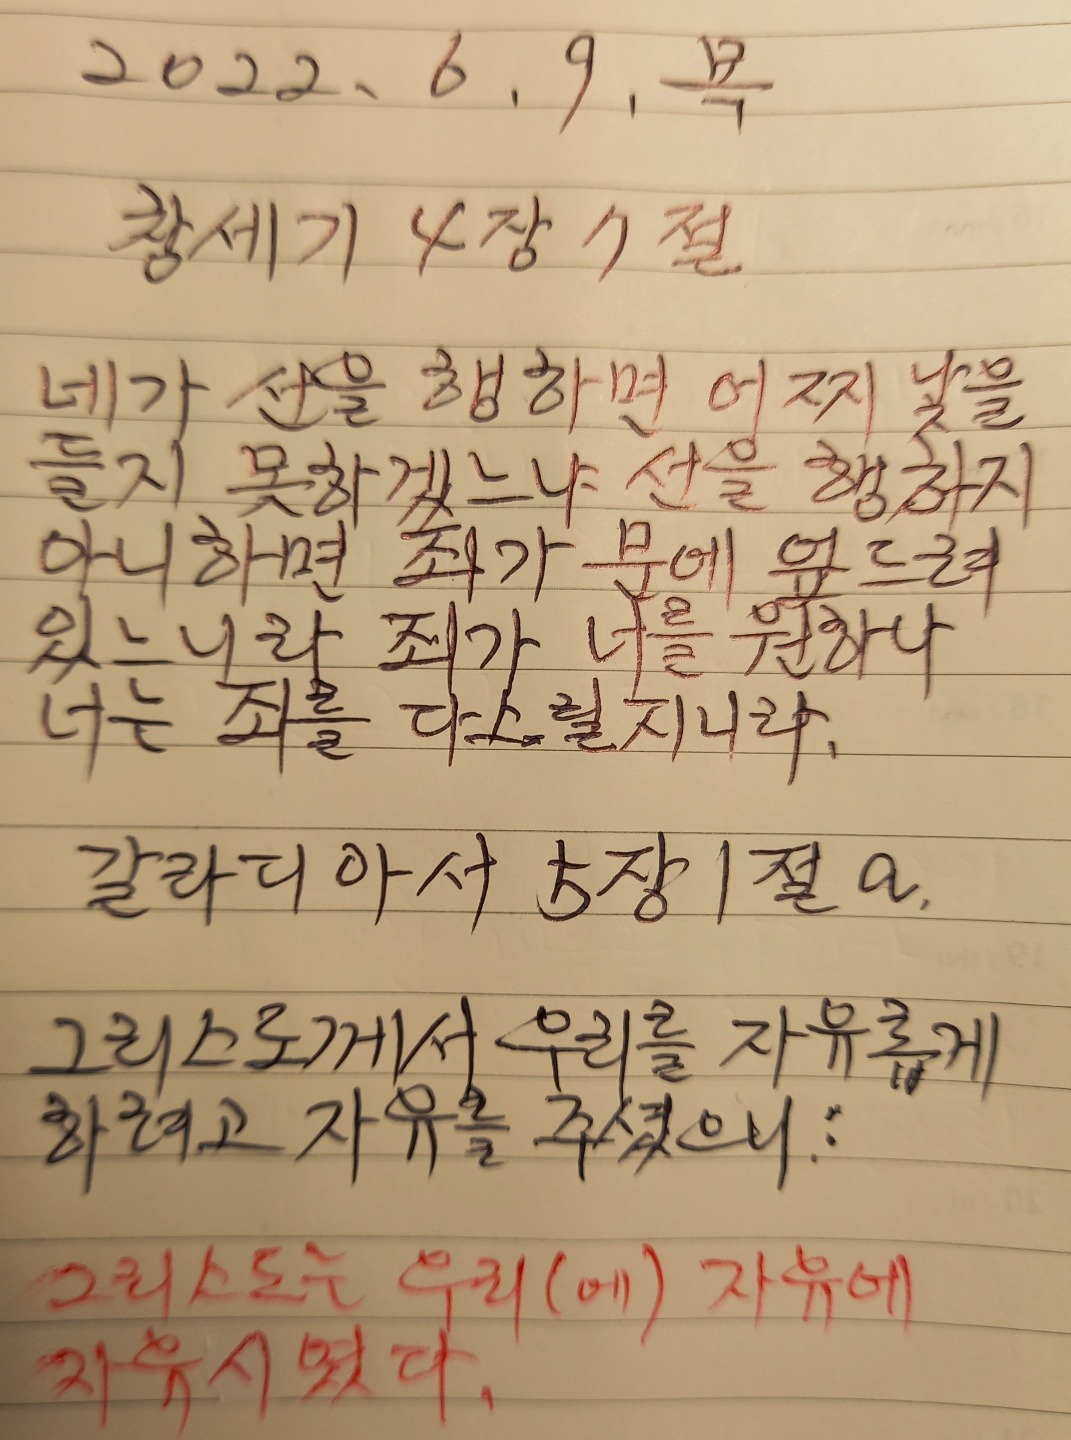 2022. 6. 9. 목
창세기 4장 7절
네가 선을 행하면 어찌 낯을
들지 못하겠느냐 선을 행하지
아니하면 죄가 문에 엎드려
있느니라 죄가 너를 원하나
너는 죄를 다스릴지니라.
갈라디아서 5장 1절 a.
그리스도께서 우리를 자유롭게
하려고 자유를 주셨으니:
그리스도는 우리(에) 자유에
자유시였다.